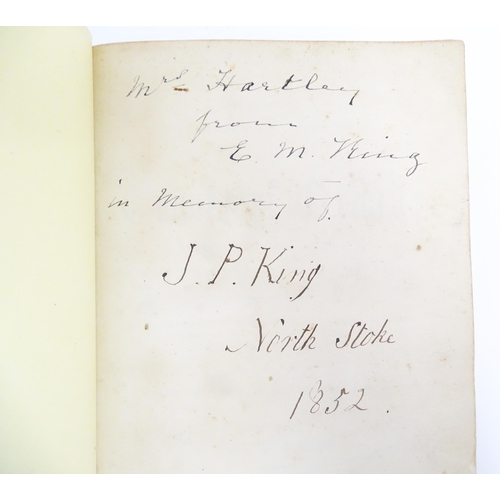 Mrs Hartley
from
E. M. King
in Memory of
J. P. King
North Stoke
1852.